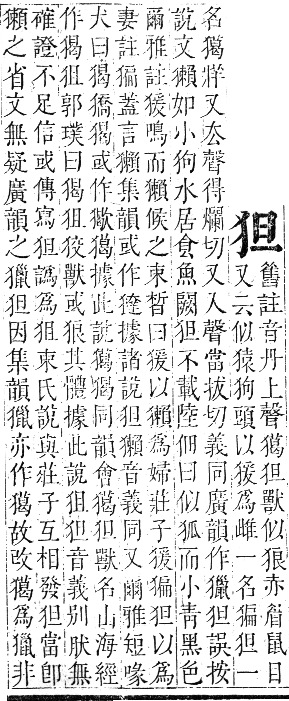 狚
舊註音丹上聲獦狚獸似狼赤眉鼠目
又云似猿狗頭以猨爲雌一名猵狚一
名獦牂又去聲得爛切又入聲當拔切義同廣韻作獵狚誤按
說文獺如小狗水居食魚闕狚不載陸佃曰似狐而小靑黑色
爾雅註猨鳴而獺候之束晳曰猨以獺爲婦莊子猨猵狚以爲
妻註猵蓋言獺集韻或作㺚據諸說狚獺音義同又爾雅短喙
犬曰猲獢猲或作獥獦據此說獦猲同韻會獦狚獸名山海經
作猲狙郭璞曰猲狙狡獸或狼其體據此說狙狚音義别肰無
確證不足信或傳寫狚譌爲狙束氏說與莊子互相發狚當卽
獺之省文無疑廣韻之獵狚因集韻獵亦作獦故改獦爲獵非